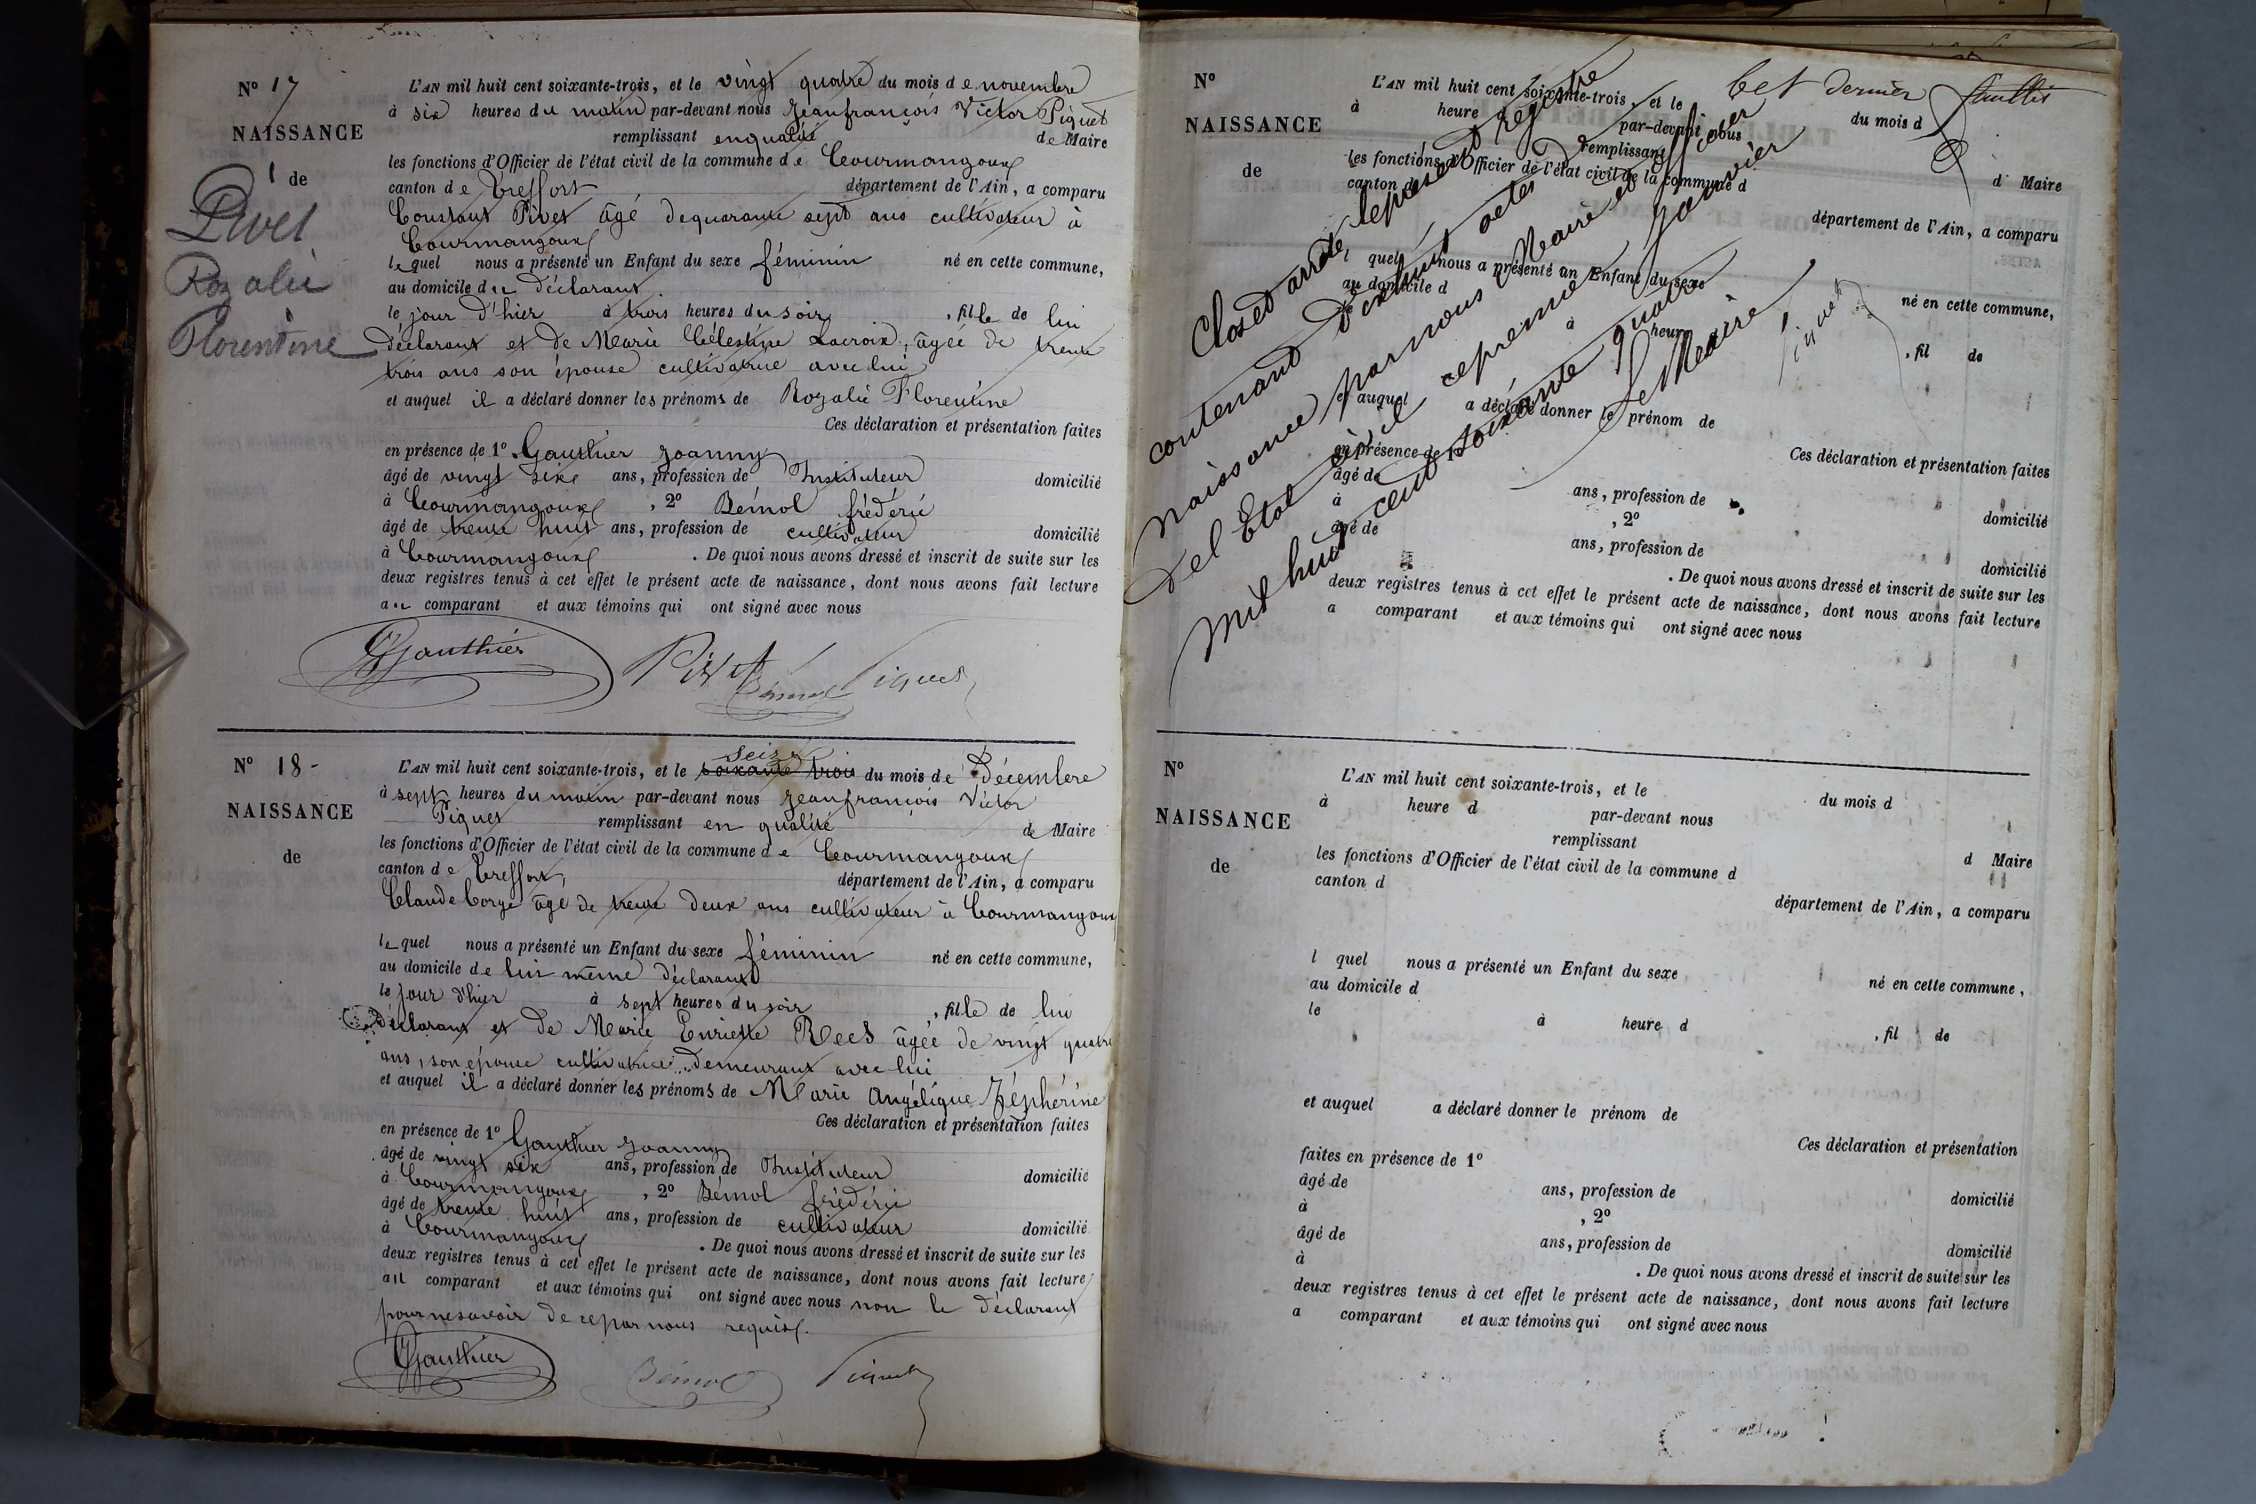 N° 17
NAISSANCE
de
Pivet
Rozalie
Florentine
L'AN mil huit cent soixante-trois, et le vingt quatre du mois de novembre
à six heures du matin par-devant nous Jeanfrançois Victor Piquet
remplissant enqualité de Maire
les fonctions d'Officier de l'état civil de la commune de Courmangoux
canton de Treffort département de l'Ain, a comparu
Constant Pivet âgé dequarante sept ans cultivateur à
Courmangoux
lequel nous a présenté un Enfant du sexe féminin né en cette commune,
au domicile du déclarant
le jour d'hier à trois heures du soir, fille de lui
déclarant et de Marie Célestine Lacroix, âgée de trente
trois ans son épouse cultivatrice avec lui
et auquel il a déclaré donner les prénoms de Rozalie Florentine
Ces déclaration et présentation faites
en présence de 1° Gauthier Joanny
âgé de vingt six ans, profession de Instituteur domicilié
à Courmangoux, 2° Bémol frédéric
âgé de trente huit ans, profession de cultivateur domicilié
à Courmangoux. De quoi nous avons dressé et inscrit de suite sur les
deux registres tenus à cet effet le présent acte de naissance, dont nous avons fait lecture
au comparant et aux témoins qui ont signé avec nous
Gauthier Pivet Bémol Piquet
N° 18-
NAISSANCE
de
seize
L'AN mil huit cent soixante-trois, et le soixante trois du mois de Décembre
à sept heures du matin par-devant nous Jeanfrançois Victor
Piquet remplissant en qualité de Maire
les fonctions d'Officier de l'état civil de la commune de Courmangoux
canton de Treffort, département de l'Ain, a comparu
Claude Corge âgé de trente deux ans cultivateur à Courmangoux
lequel nous a présenté un Enfant du sexe féminin né en cette commune,
au domicile de lui même déclarant
le jour d'hier à sept heures du soir, fille de lui
déclarant et de Marie Enriette Rees âgée de vingt quatre
ans, son épouse cultivatrice demeurant avec lui
et auquel il a déclaré donner les prénoms de Marie Angélique Zéphérine
Ces déclaration et présentation faites
en présence de 1° Gauthier Joanny
âgé de vingt six ans, profession de Instituteur domicilié
à Courmangoux, 2° Bémol frédéric
âgé de trente huit ans, profession de cultivateur domicilié
à Courmangoux. De quoi nous avons dressé et inscrit de suite sur les
deux registres tenus à cet effet le présent acte de naissance, dont nous avons fait lecture
au comparant et aux témoins qui ont signé avec nous non le déclarant
pour ne savoir de ce par nous requis.
Gauthier Bémol Piquet
Cet dernier feuillet
N°
NAISSANCE
de
L'AN mil huit cent soixante-trois, et le du mois d
à heure par-devant nous
remplissant d Maire
les fonctions d'Officier de l'état civil de la commune d
canton d département de l'Ain, a comparu
l quel nous a présenté un Enfant du sexe né en cette commune,
au domicile d
à heure, fil de
et auquel a déclaré donner le prénom de
Ces déclaration et présentation faites
en présence de 1°
âgé de ans, profession de domicilié
à , 2°
âgé de ans, profession de domicilié
. De quoi nous avons dressé et inscrit de suite sur les
deux registres tenus à cet effet le présent acte de naissance, dont nous avons fait lecture
a comparant et aux témoins qui ont signé avec nous
Closet arrêté le présent registre
contenant Dixhuit actes De
naissance par nous Maire et officier
Del Etat civil ce premier Janvier
mil huit cent soixante quatre
Le Maire
Piquet
N°
NAISSANCE
de
L'AN mil huit cent soixante-trois, et le du mois d
à heure d par-devant nous
remplissant d Maire
les fonctions d'Officier de l'état civil de la commune d
canton d département de l'Ain, a comparu
l quel nous a présenté un Enfant du sexe né en cette commune,
au domicile d
le à heure d , fil de
et auquel a déclaré donner le prénom de
Ces déclaration et présentation
faites en présence de 1°
âgé de ans, profession de domicilié
à , 2°
âgé de ans, profession de domicilié
à . De quoi nous avons dressé et inscrit de suite sur les
deux registres tenus à cet effet le présent acte de naissance, dont nous avons fait lecture
a comparant et aux témoins qui ont signé avec nous